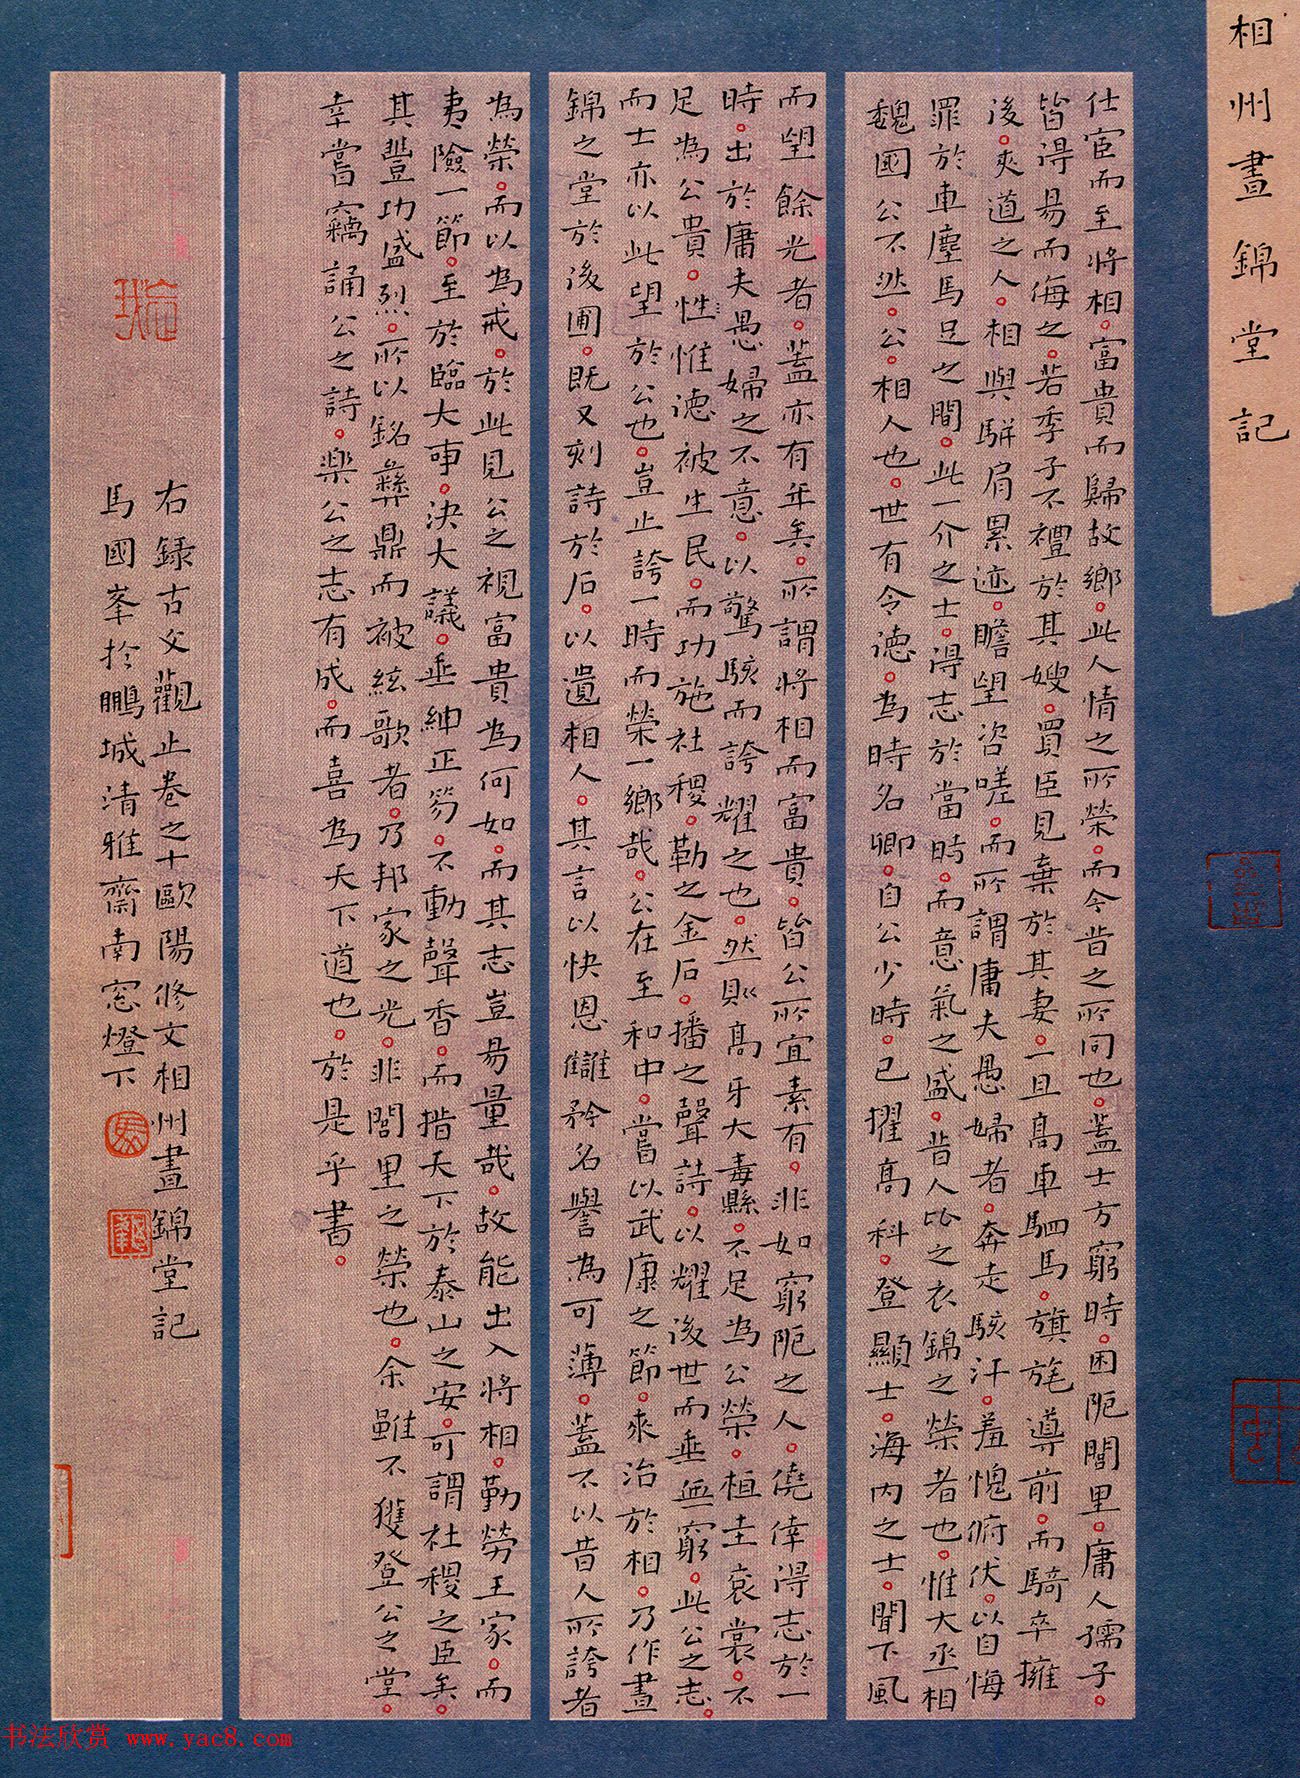 相州晝錦堂記
仕宦而至將相。富貴而歸故鄉。此人情之所榮。而今昔之所同也。蓋士方窮時。困阨閭里。庸人孺子。
皆得易而侮之。若季子不禮於其嫂。買臣見棄於其妻。一旦高車駟馬。旗旄導前。而騎卒擁
後。夾道之人。相與駢肩累迹。瞻望咨嗟。而所謂庸夫愚婦者。奔走駭汗。羞愧俯伏。以自悔
罪於車塵馬足之間。此一介之士。得志於當時。而意氣之盛。昔人比之衣錦之榮者也。惟大丞相
魏國公不然。公。相人也。世有令德。為時名卿。自公少時。已擢高科。登顯士。海內之士。聞下風
而望餘光者。蓋亦有年矣。所謂將相而富貴。皆公所宜素有。非如窮阨之人。僥倖得志於一
時。出於庸夫愚婦之不意。以驚駭而誇耀之也。然則高牙大纛。不足為公榮。桓圭袞裳。不
足為公貴。性惟德被生民。而功施社稷。勒之金石。播之聲詩。以耀後世而垂無窮。此公之志。
而士亦以此望於公也。豈止誇一時而榮一鄉哉。公在至和中。嘗以武康之節。來治於相。乃作晝
錦之堂於後圃。既又刻詩於石。以遺相人。其言以快恩讎矜名譽為可薄。蓋不以昔人所誇者
為榮。而以為戒。於此見公之視富貴為何如。而其志豈易量哉。故能出入將相。勤勞王家。而
夷險一節。至於臨大事。決大議。垂紳正笏。不動聲香。而措天下於泰山之安。可謂社稷之臣矣。
其豐功盛烈。所以銘彝鼎而被絃歌者。乃邦家之光。非閭里之榮也。余雖不獲登公之堂。
幸嘗竊誦公之詩。樂公之志有成。而喜為天下道也。於是乎書。
右錄古文觀止卷之十歐陽修文相州晝錦堂記
馬國峯於鵬城清雅齋南窓燈下
书法欣赏 www.yac8.com